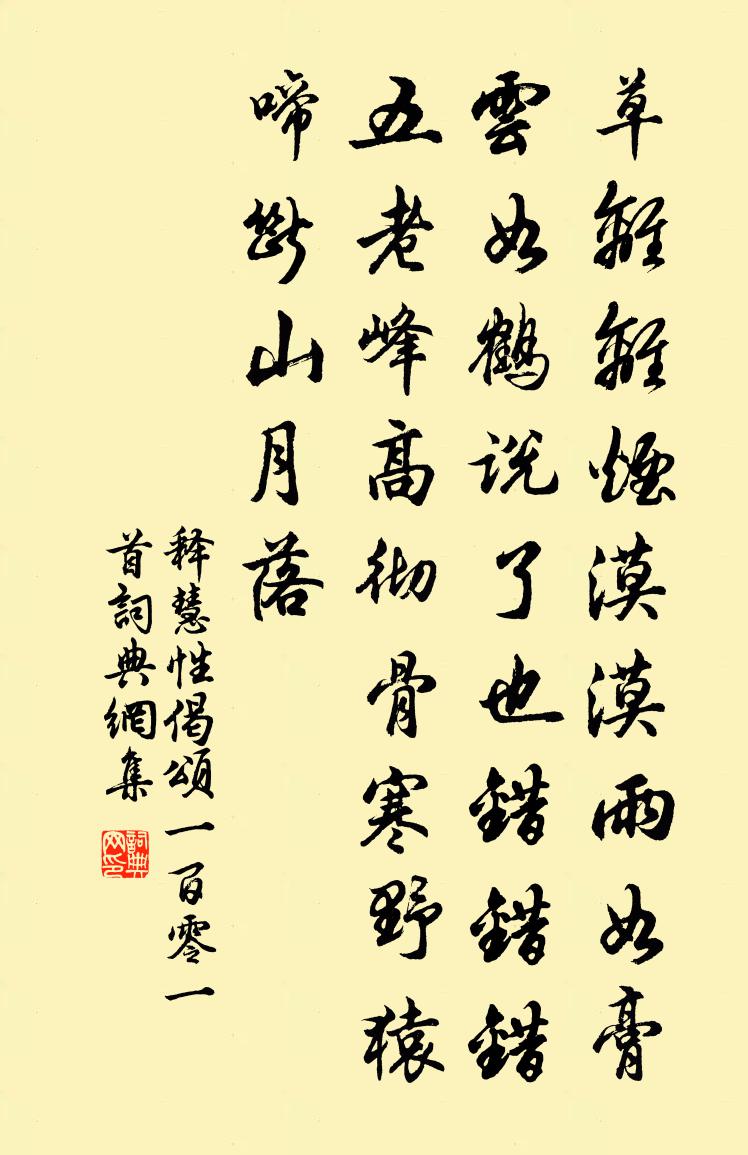 草離離煙漠漠雨如膏
雲如鶴說了也錯錯錯
五老峰高徹骨寒野猿
啼斷山月落
释慧性偈頌一百零一
首詞典網集
詞典網印